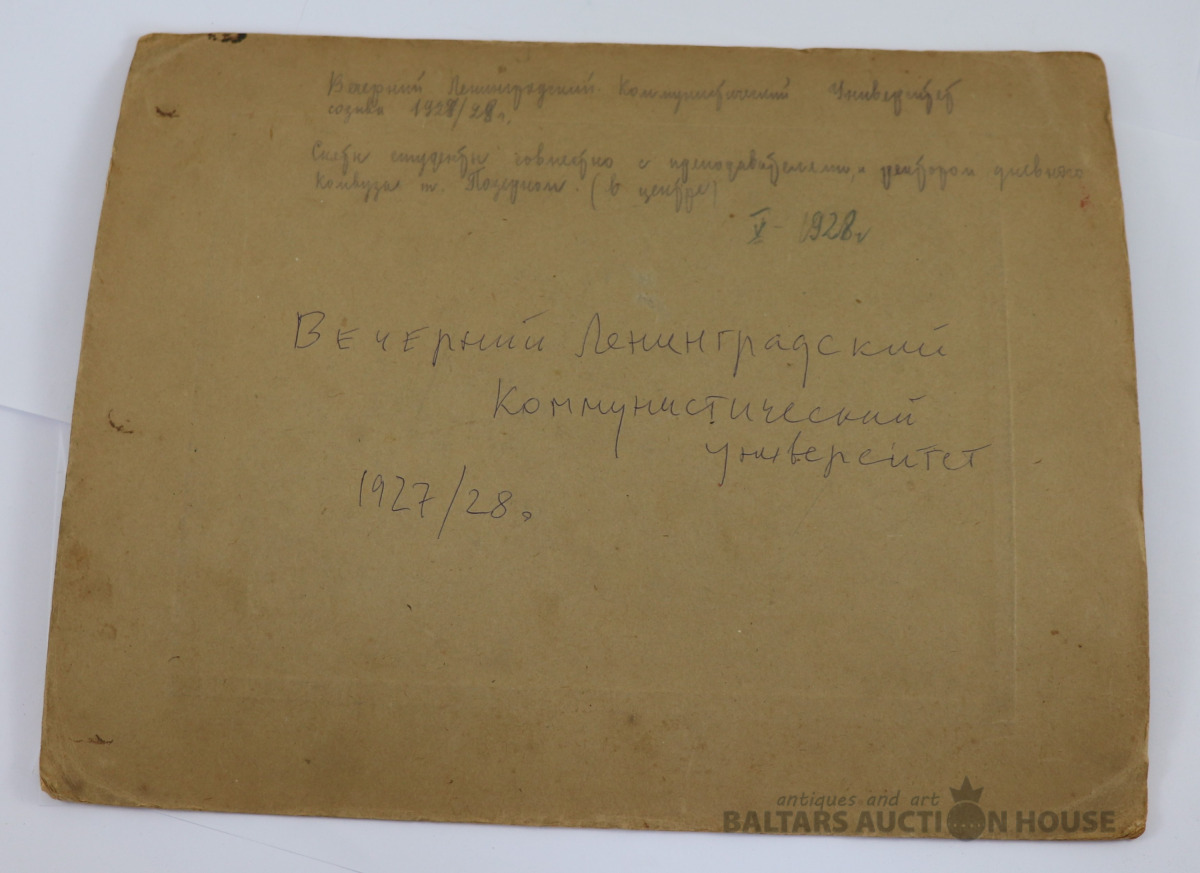 Вечерний Ленинградский Коммунистический Университет
созыва 1927/28 г.
студенты совместно с преподавателями и ректором дневного
Комвуза т. Позерном. (в центре)
V - 1928 г
Вечерний Ленинградский
Коммунистический
университет
1927/28 г.
antiques and art
BALTARS AUCTION HOUSE